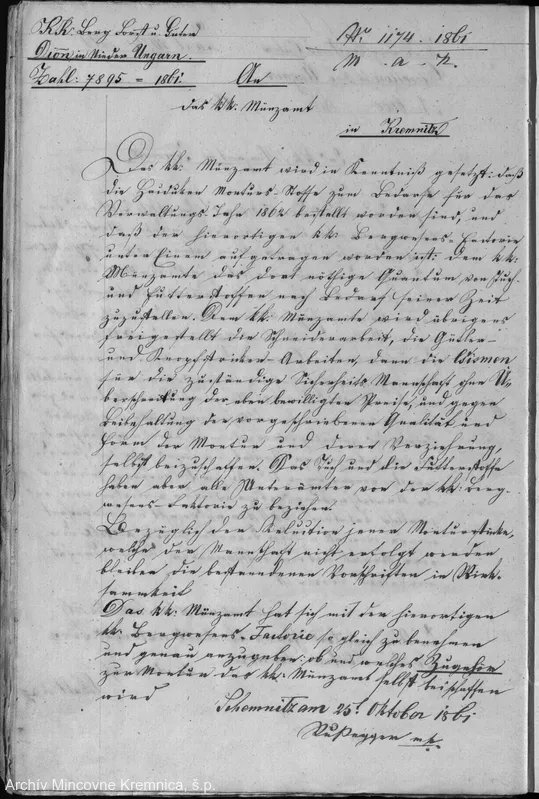 K.K. Berg Forst u. Güter
Dion in Nieder Ungarn.
Zahl: 7895 = 1861
Nr 1174. 1861
M. a. p.
An
das kk. Münzamt
in Kremnitz
Das kk. Münzamt wird in Kenntniß gesetzt: daß
die Haiduken Monturs-Stoffe zum Bedarfe für das
Verwaltungs Jahr 1862 bestellt worden sind, und
daß der hierortigen kk Bergwesens Factorie
unter Einem aufgetragen worden ist: dem kk.
Münzamte das dort nöthige Quantum von Tuch-
und Futterstoffen nach Bedarf seiner Zeit
zuzustellen. Dem kk: Münzamte wird übrigens
freigestellt die Schneiderarbeit, die Gürtler-
und Knopfstricker-Arbeiten, dann die Cismen
für die zuständige Sicherheits Mannschaft ohne Ü-
berschreitung der oben bewilligten Preise, und gegen
Beibehaltung der vorgeschriebenen Qualität und
Form der Montur und deren Verziehrung
selbst beizuschaffen. Das Tuch und die Futterstoffe
haben aber alle Unterämter von der kk: Berg-
wesens-Faktorie zu beziehen.
Bezüglich der Reluition jener Monturstücke,
welche der Mannschaft nicht erfolgt werden
bleiben die bestandenen Vorschriften in Wirk-
samkeit
Das kk. Münzamt hat sich mit der hierortigen
kk. Bergwesens-Factorie sogleich zu benehmen
und genau anzugeben: ob und welches Zugehör
zur Montur das kk. Münzamt selbst beischaffen
wird
Schemnitz am 25t Oktober 1861
Rußegger m.p.
Archív Mincovne Kremnica, š.p.